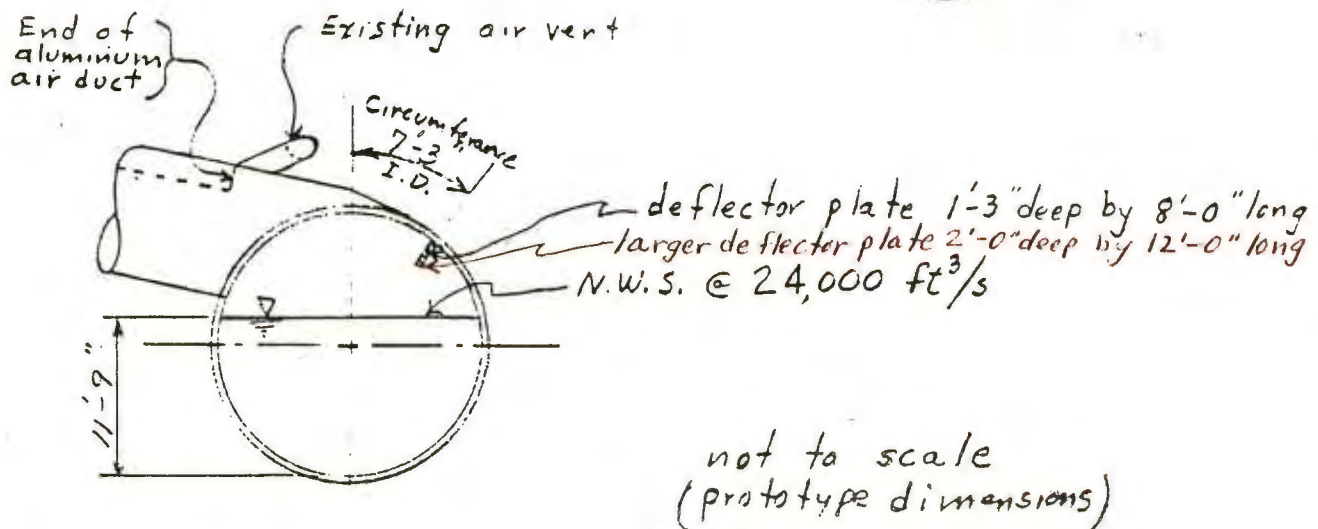 End of
aluminum
air duct
Existing air vent
Circumferance
7'-3
I.D.
deflector plate 1'-3" deep by 8'-0" long
larger deflector plate 2'-0" deep by 12'-0" long
N.W.S. @ 24,000 ft³/s
11'-9"
not to scale
(prototype dimensions)